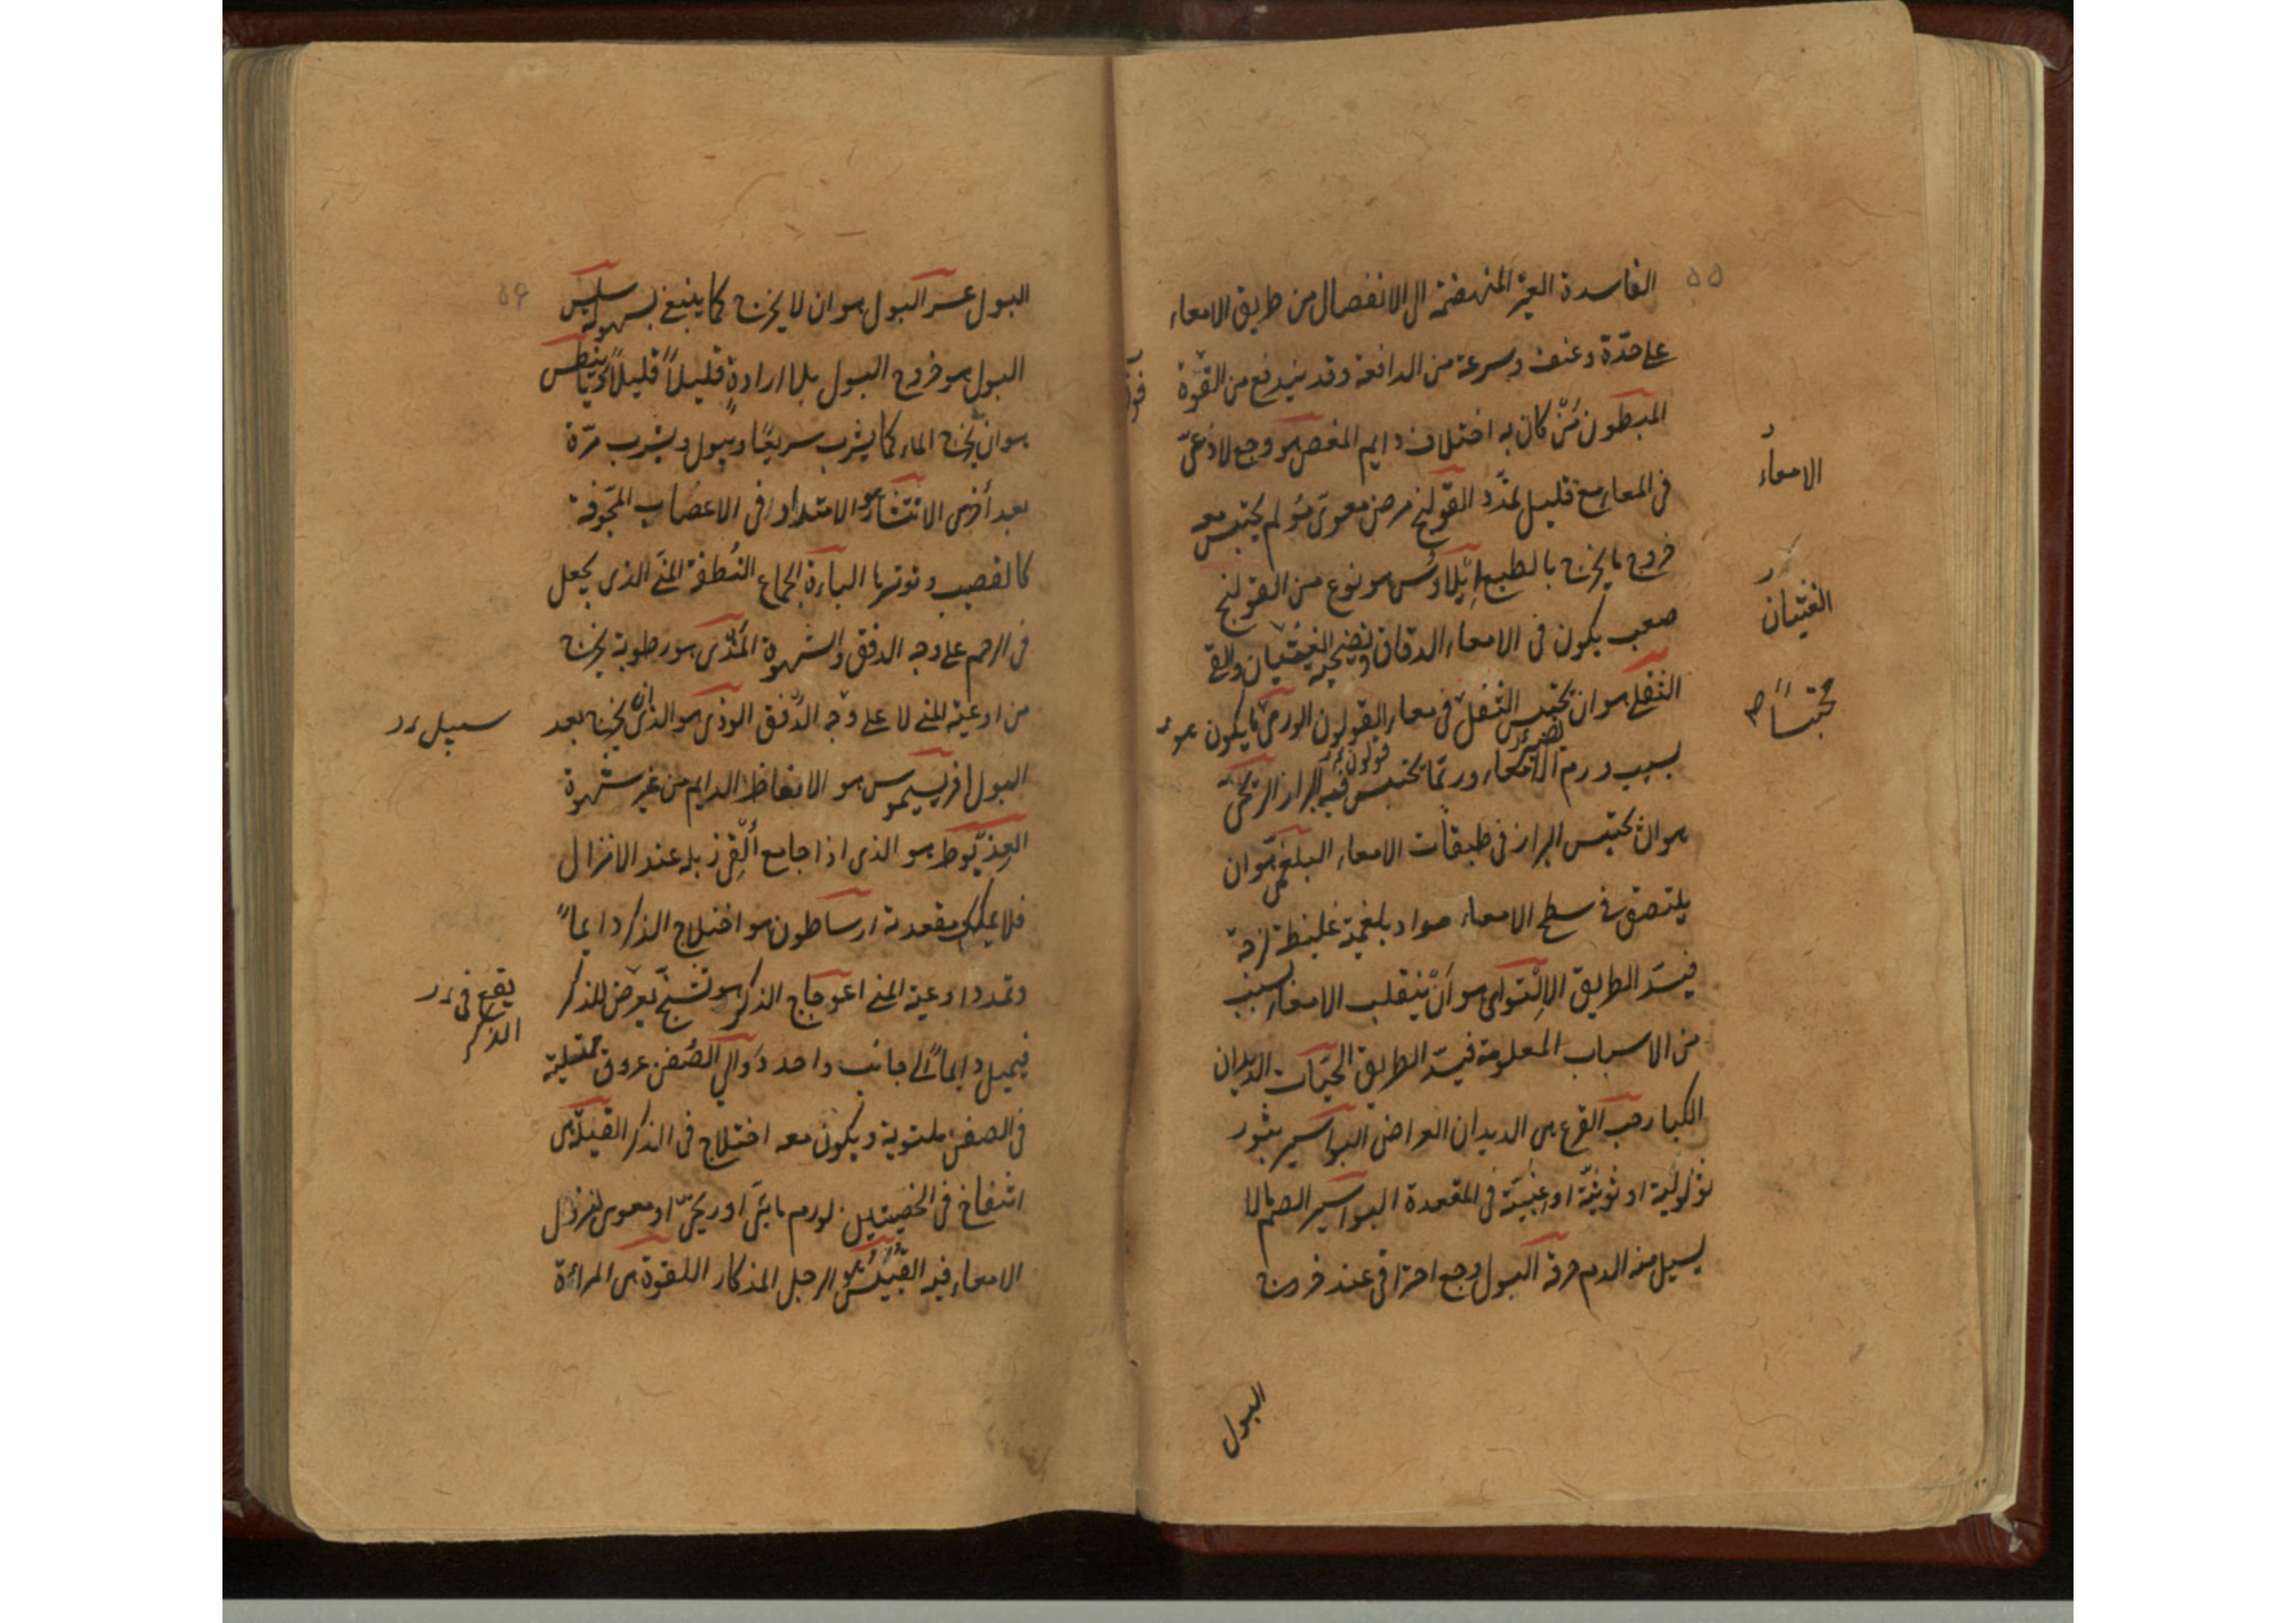 ٥٥
الفاسدة الغير المنهضمة الى الانفصال من طريق الامعاء
على حدّة وعنف وسرعة من الدافعة وقد يندفع من القوّة
المبطون مَنْ كان به اختلاف دايم المغص هو وجع لاذعىّ
الامعاء
فى المعاء مع قليل تمدّد القولنج مرض معوىّ مؤلم يحتبس معه
خروج ما يخرج بالطبع إيْلاوُس هو نوع من القولنج
الغثيان
صعب يكون فى الامعاء الدقاق ونصحبه الغثيان والقئ
الثفلى هو ان يحتبس الثفل فى معاء القولون الورمى ما يكون
محتبساً صح
بسبب ورم الامعاء وربّما تحتبس فيه البراز الريحىّ
قولون
هو ان يحتبس البراز فى طبقات الامعاء البلغمى هو ان
يلتصق فى سطح الامعاء مواد بلغمية غليظة لزجة
فيسدّ الطريق الإلْتوائى هو أنْ ينقلب الامعاء بسبب
من الاسباب المعلومة فيسدّ الطريق الحيّات الديدان
الكبار حب القرع هى الديدان العراض البواسير بثور
ثؤلوليّة او توثيّة او عنبيّة فى المقعدة البواسير الصم ما لا
يسيل منه الدم حرقة البول وجع احتراقى عند خروج
البول
٥٦
البول عسر البول هو ان لا يخرج كما ينبغى بسهولة سلس
البول هو خروج البول بلا ارادةٍ قليلاً قليلاً ديانيطس
هو ان يخرج الماء كما يشرب سريعًا ويبول ويشرب مرّة
بعد أخرى الانتشار هو الامتداد فى الاعصاب المجوّفة
كالقضيب وتوترها الباءة الجماع النُطفة المنىّ الذى يجعل
فى الرحم على وجه الدفق والشهوة المَذْى هو رطوبة يخرج
من اوعية المنى لا على وجه الدّفق الوذى هو الذى يخرج بعد
سيل
البول افريسيموس هو الانعاظ الدايم من غير شهوة
العِذْيَوط هو الذى اذا جامع ألْقى زبله عند الانزال
فلا يملك مقعدته ارساطون هو اختلاج الذكر دايماً
وتمدد اوعية المنى اعوجاج الذكر هو تشنّج يعرض للذكر
يقع فى
الذكر
فيميل دايماً الى جانب واحد دَوالى الصَفن عروق ممتلية
فى الصفن ملتوية ويكون معه اختلاج فى الذكر القيلة هى
انتفاخ فى الخصيتين لورم مائىّ او ريحىّ او معوى لنزول
الامعاء فيه القُبَيْس هو الرجل المذكار اللقوة هى المراءة